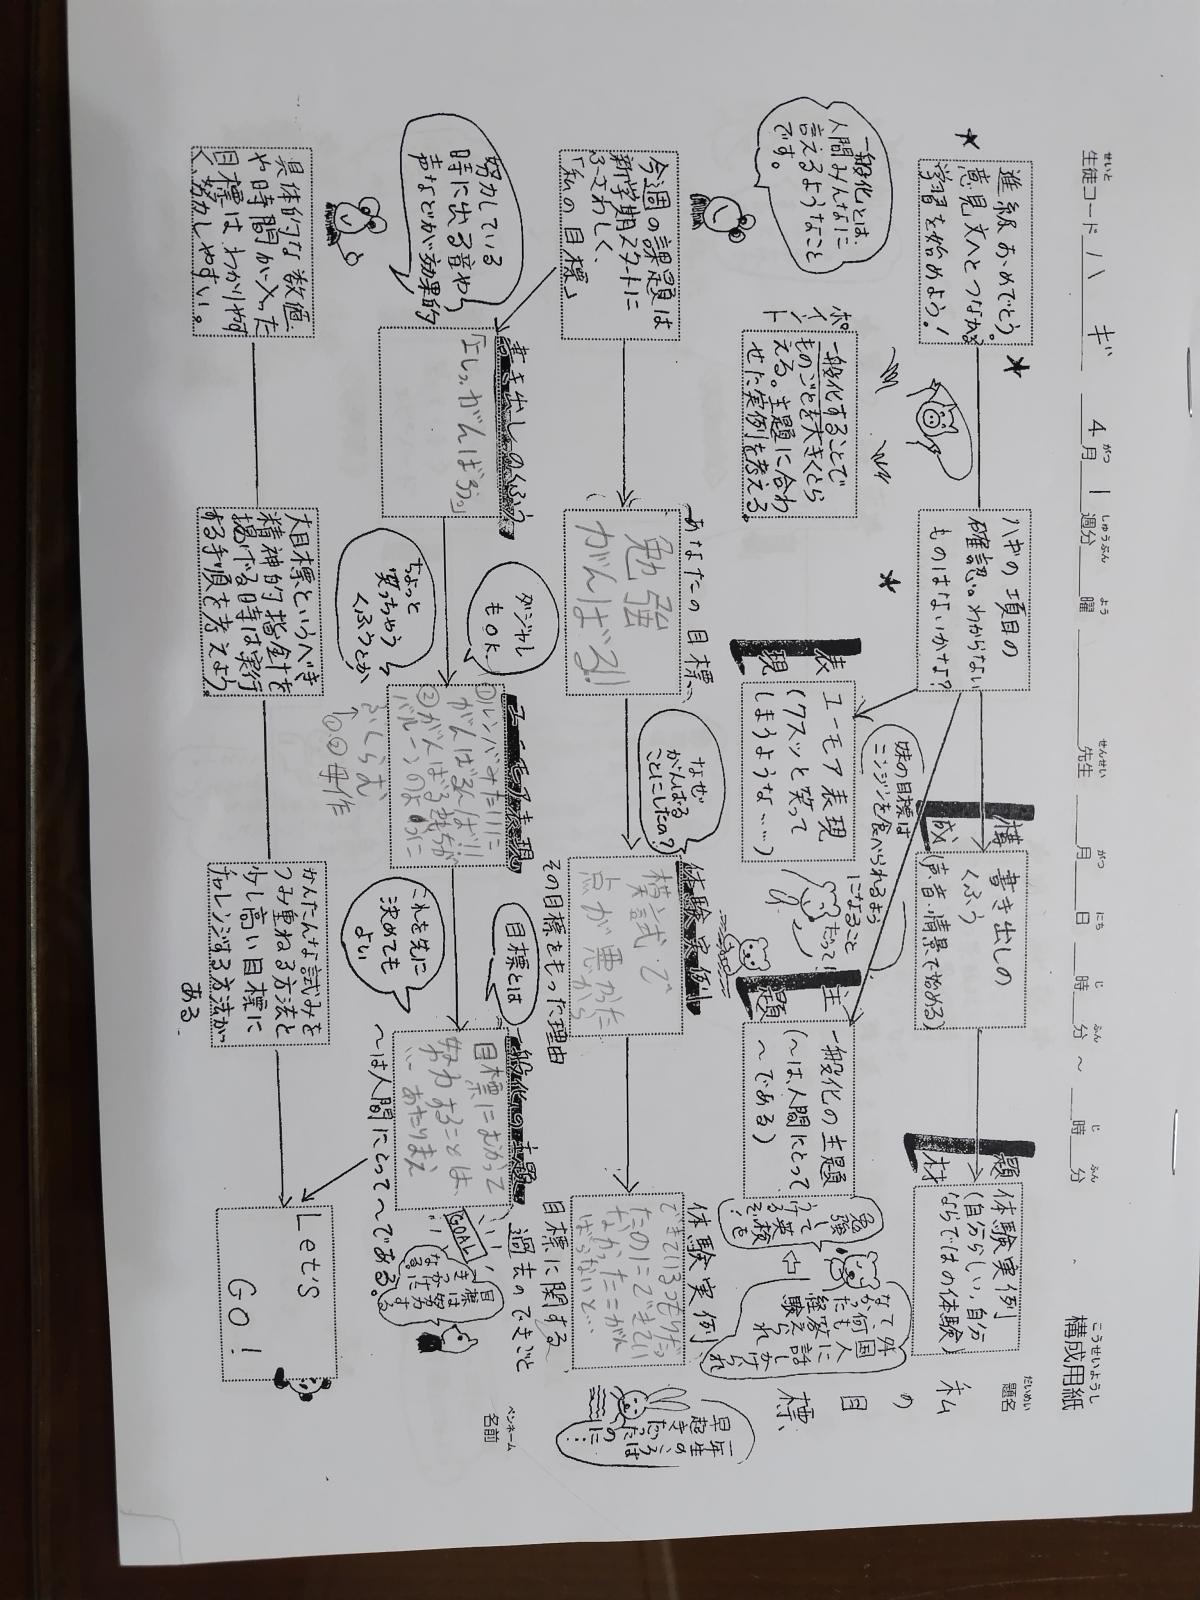 構成用紙
こうせいようし
生徒コード ハ ギ 4月 1週分 曜 先生 月 日 時 分 ～ 時 分
せいと がつ しゅうぶん よう せんせい がつ にち じ ふん じ ふん
題名
だいめい
私の目標
ペンネーム
名前
進級おめでとう。
意見文へとつながる
学習を始めよう！
ハギの項目の
確認。わからない
ものはないかな？
構成
書き出しの
くふう
(声・音・情景で始める)
題材
体験実例
(自分らしい,自分
ならではの体験)
一般化とは、
人間みんなに
言えるようなこと
です。
ポイント
一般化することで
ものごとを大きくとら
える。主題に合わ
せた実例を考える。
表現
ユーモア表現
(クスッと笑って
しまうような……)
妹の目標は
ニンジンを食べられるよう
になること
だって！
主題
一般化の主題
(～は、人間にとって
～である)
勉強し
て英検を
うける
外国人に話しかけられ
て、何も答えられ
なかった経験
今週の課題は
新学期スタートに
ふさわしく、
「私の目標」
あなたの目標
勉強
がんばる!!
なぜ
がんばる
ことにしたの？
体験実例
模試で
点が悪かった
から
その目標をもった理由
体験実例
できているつもりだっ
たのにできてい
なかったこがん
ばらないと…
目標に関する
過去のできごと
一年生のころは
早起きだった
のに…
努力している
時に出る音や
声などが効果的
書き出しのくふう
「よしっ、がんばるぞ。」
ダジャレ
もOK
ちょっと
笑っちゃう
くふうとか
ユーモア表現
①ルンバみたいに
がんばるんば!!
②がんばる気もちが
バルーンのように
ふくらむ
↑
①②母作
目標とは
これを先に
決めても
よい
一般化の主題
目標にむかって
努力することは、
…あたりまえ
～は人間にとって～である。
GOAL
目標は努力する
具体的な数値
や時間が入った
目標はわかりやす
く、努力しやすい。
大目標というべき
精神的指針を
掲げる時は実行
する手順を考えよう。
かんたんな試みを
つみ重ねる方法と
少し高い目標に
チャレンジする方法が
ある
Let's
GO！